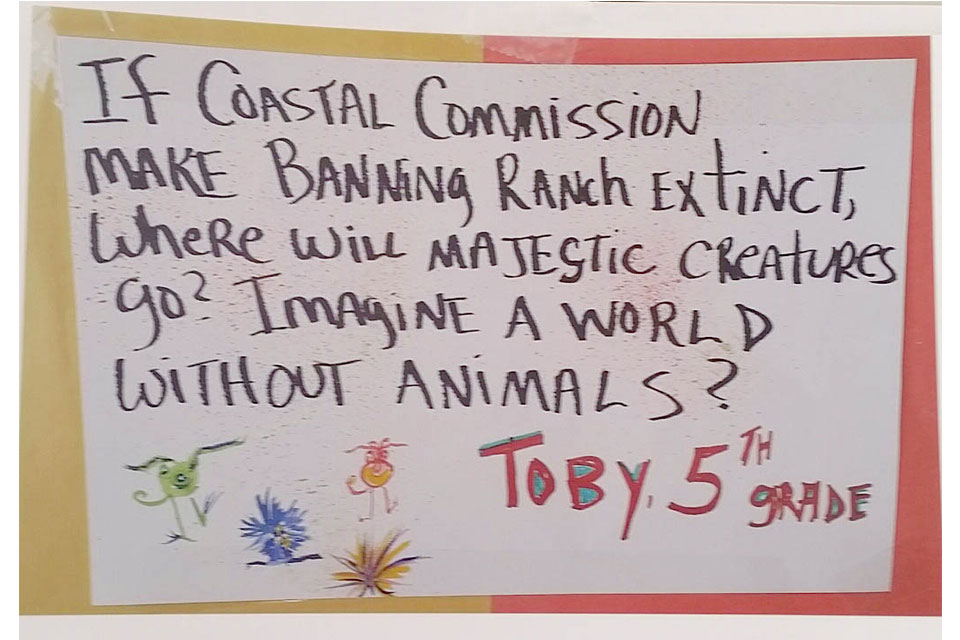 If Coastal Commission
make Banning Ranch extinct,
where will majestic creatures
go? Imagine a world
without animals?
Toby, 5TH
grade